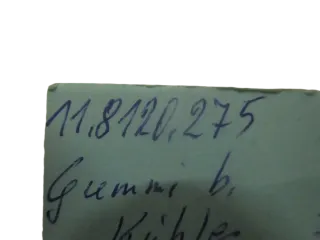 11.8120.275
Gummi b.
Kühler